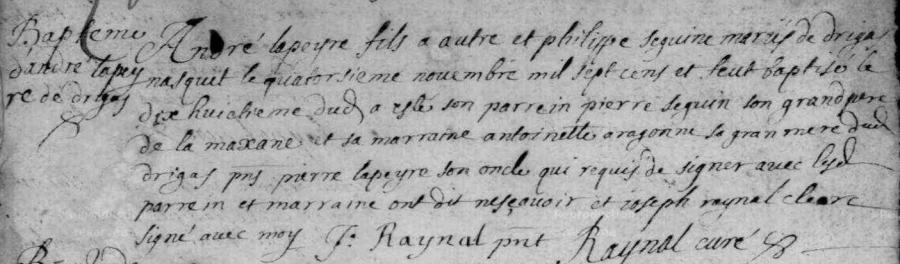 Bapteme
dandré lapey
re de drigas
André lapeyre fils a autre et philippe seguine mariés de drigas
nasquit le quatorsieme novembre mil sept cens et feut baptisé le
dix huictieme dud a esté son parrein pierre seguin son grand pere
de la maxane et sa marraine antoinette aragonne sa gran mere dud
drigas pns pierre lapeyre son oncle qui requis de signer avec lesd
parrein et marraine ont dit nesçavoir et joseph raynal clerc
signé avec moy J. Raynal pnt Raynal curé